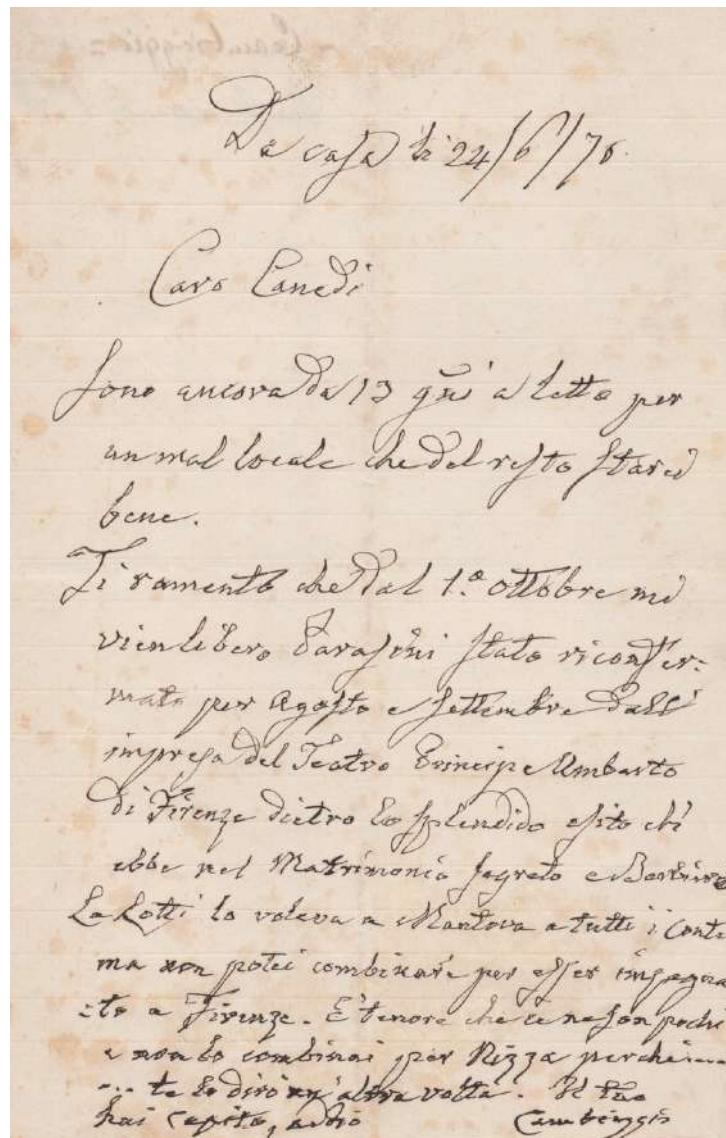 Da casa li 24/6/76.
Caro Canedi
Sono ancora da 13 gni a letto per
un mal locale che del resto starei
bene.
Ti ramento che dal 1.º ottobre mi
vien libero Parasini stato riconfer:
mato per Agosto e settembre dall'
impresa del Teatro Principe Umberto
di Firenze dietro lo splendido esito ch'
ebbe nel Matrimonio segreto e Barbiere
La Lotti lo voleva a Mantova a tutti i conti
ma non potei combinare per esser impegna
:to a Firenze. E' tenore che ce ne son pochi
e non lo combinai per Nizza perchè....
... te lo dirò un' altra volta. Il tuo
hai capito, addio Cambiaggio